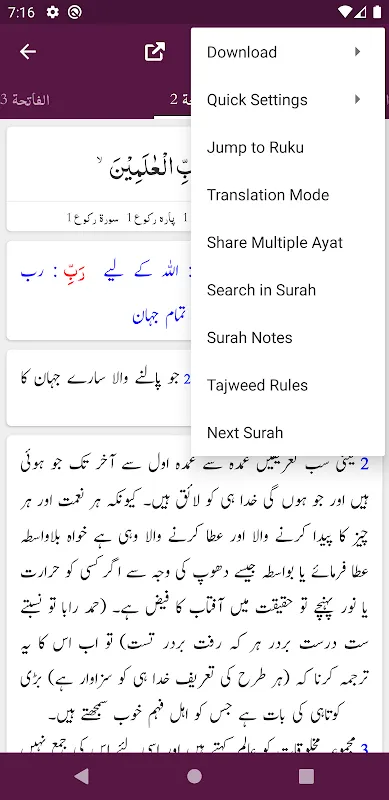 7:16
Download
Quick Settings
Jump to Ruku
Translation Mode
Share Multiple Ayat
Search in Surah
Surah Notes
Tajweed Rules
Next Surah
الفاتحة 3
2
رَبِّ الْعٰلَمِيْنَ ۙ
1 پارہ رکوع 1 سورۃ رکوع 1
: اللہ کے لیے رَبِّ : رب
تمام جہان
2 جو پالنے والا سارے جہان کا
2 یعنی سب تعریفیں عمدہ سے عمدہ اول سے آخر تک جو ہوئی
ہیں اور جو ہوں گی خدا ہی کو لائق ہیں۔ کیونکہ ہر نعمت اور ہر
چیز کا پیدا کرنے والا اور عطا کرنے والا وہی ہے خواہ بلاواسطہ
عطا فرمائے یا بواسطہ جیسے دھوپ کی وجہ سے اگر کسی کو حرارت
یا نور پہنچے تو حقیقت میں آفتاب کا فیض ہے۔ (حمد رابا تو نسبتے
ست درست بردر ہر کہ رفت بردر تست) تو اب اس کا یہ
ترجمہ کرنا کہ (ہر طرح کی تعریف خدا ہی کو سزاوار ہے) بڑی
کوتاہی کی بات ہے جس کو اہل فہم خوب سمجھتے ہیں۔
3 مجموعہ مخلوقات کو عالم کہتے ہیں اور اسی لئے اس کی جمع نہیں